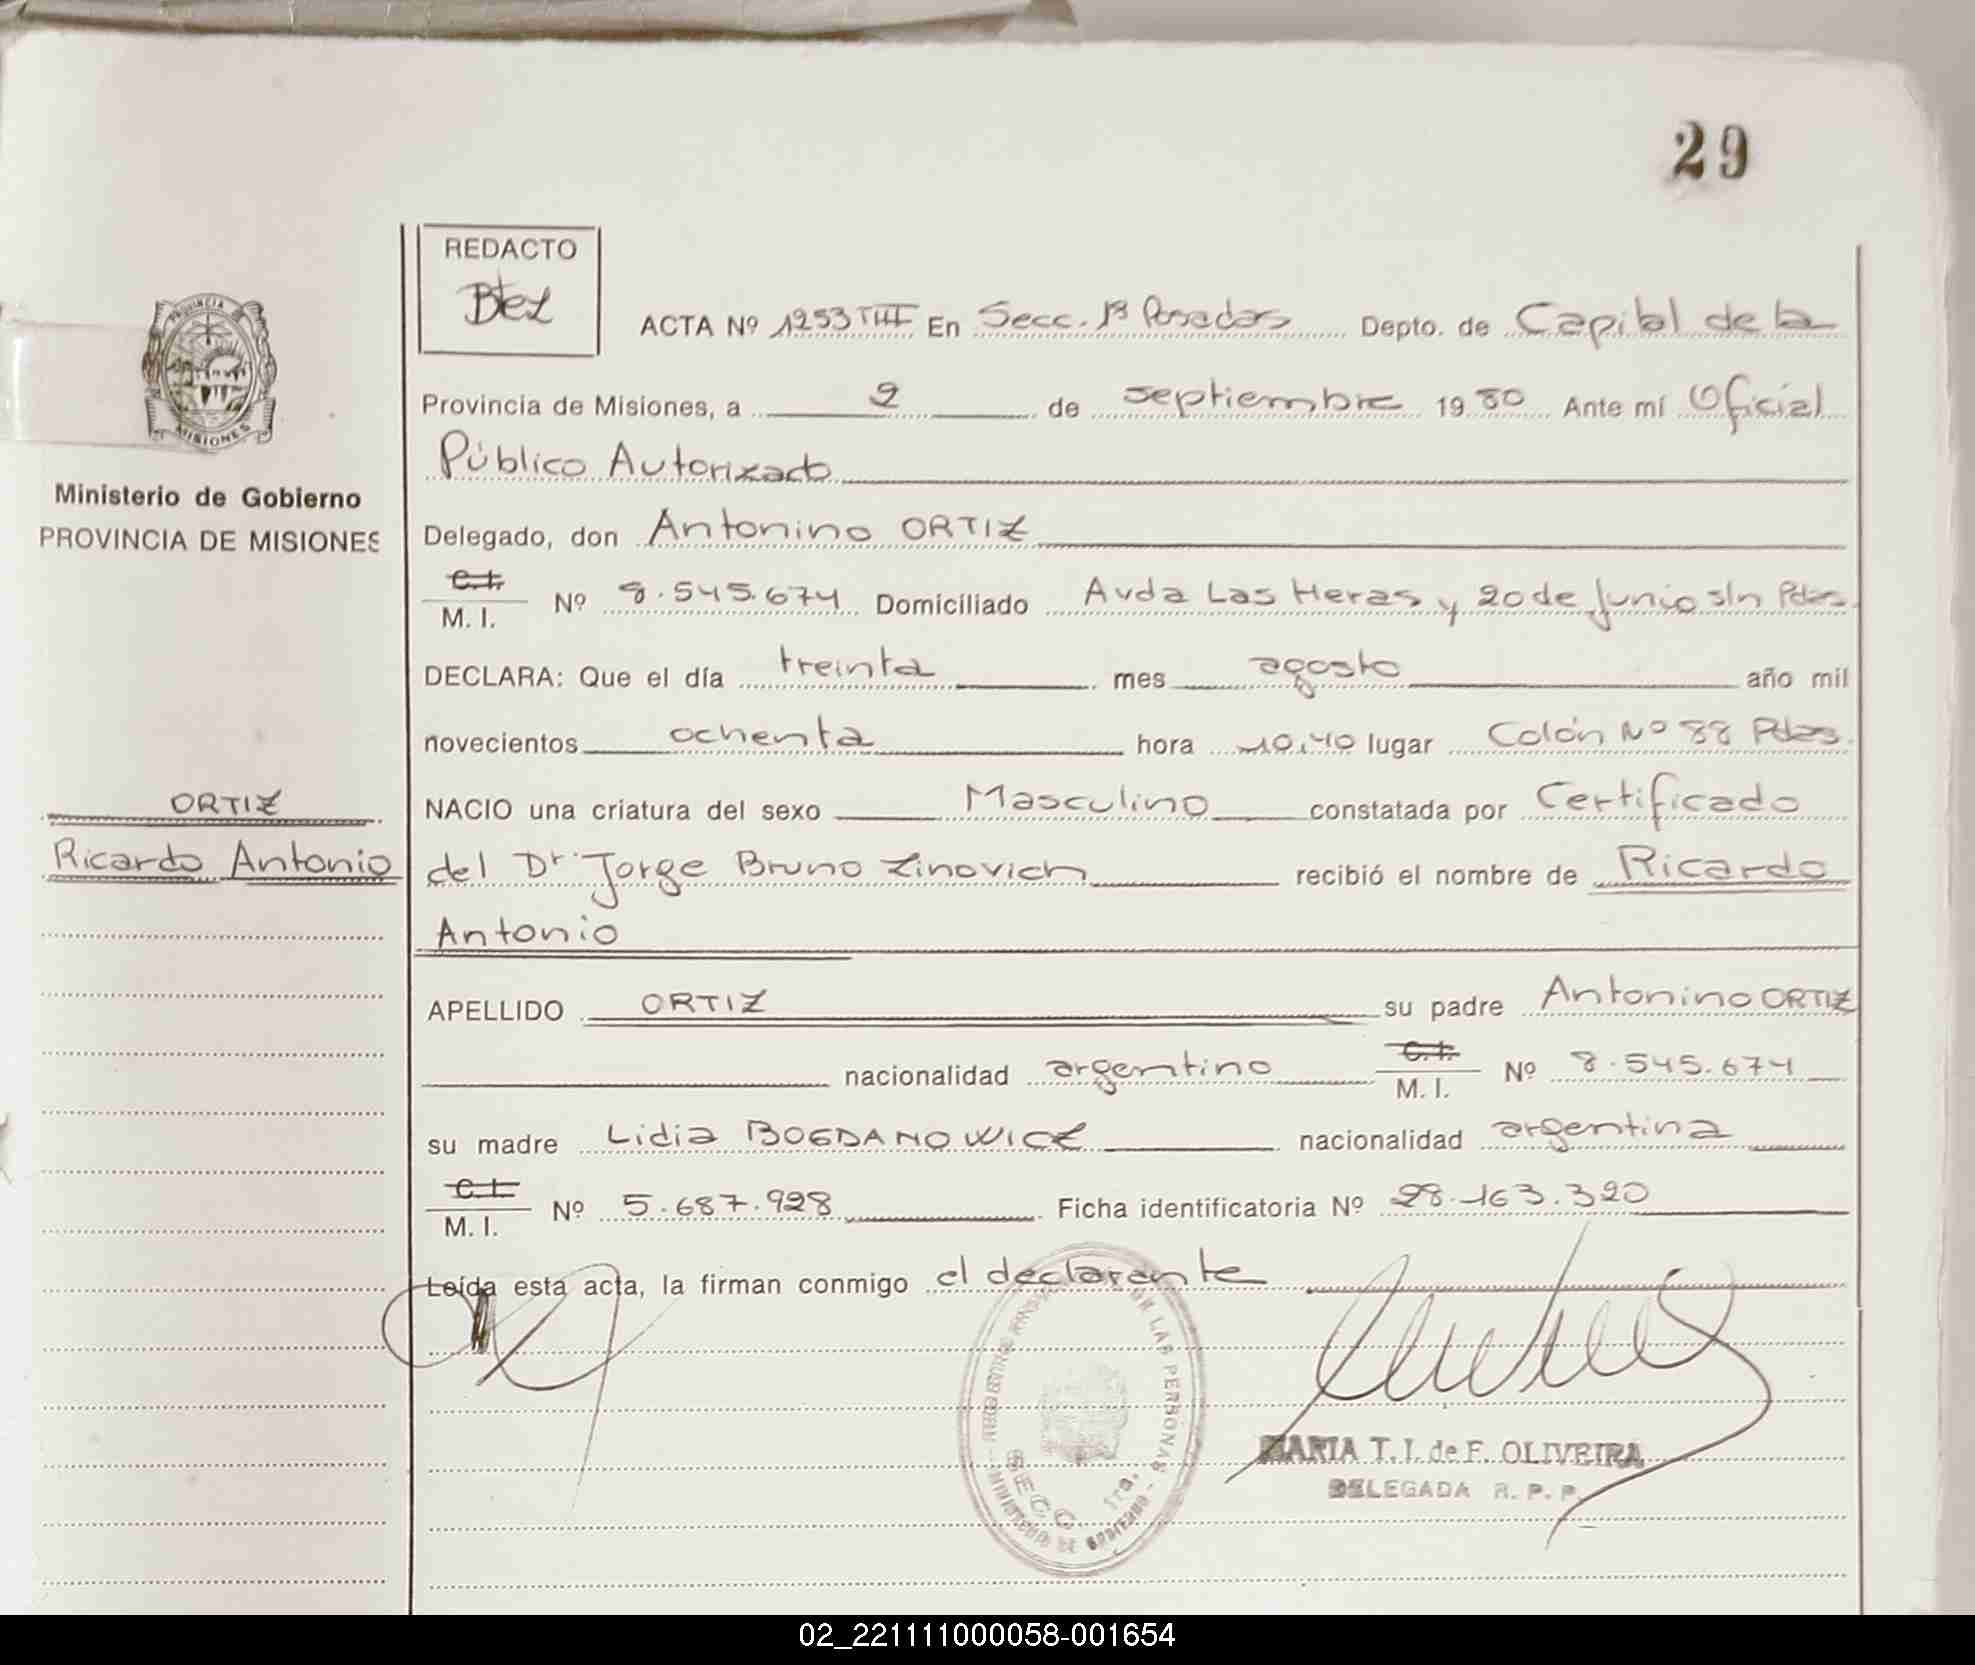 29
REDACTO
Btez
ACTA Nº 1253 TIII En Secc. 1ª Posadas Depto. de Capital de la
Provincia de Misiones, a 2 de septiembre 1980 Ante mí Oficial
Público Autorizado
Ministerio de Gobierno
PROVINCIA DE MISIONES
Delegado, don Antonino ORTIZ
C.I.
M. I. Nº 8.545.674 Domiciliado Avda Las Heras y 20 de Junio s/n Pdas.
DECLARA: Que el día treinta mes agosto año mil
novecientos ochenta hora 10,40 lugar Colón Nº 88 Pdas.
NACIO una criatura del sexo Masculino constatada por Certificado
ORTIZ
Ricardo Antonio
del Dr. Jorge Bruno Zinovich recibió el nombre de Ricardo
Antonio
APELLIDO ORTIZ su padre Antonino ORTIZ
nacionalidad argentino C.I. M. I. Nº 8.545.674
su madre Lidia BOGDANOWICZ nacionalidad argentina
C.I.
M. I. Nº 5.687.928 Ficha identificatoria Nº 28.163.320
Leída esta acta, la firman conmigo el declarante
MARIA T. I. de F. OLIVEIRA
DELEGADA R. P. P.
PROVINCIA DE MISIONES
LAS PERSONAS
SECC. 1ra.
MINISTERIO DE GOBIERNO
02_221111000058-001654